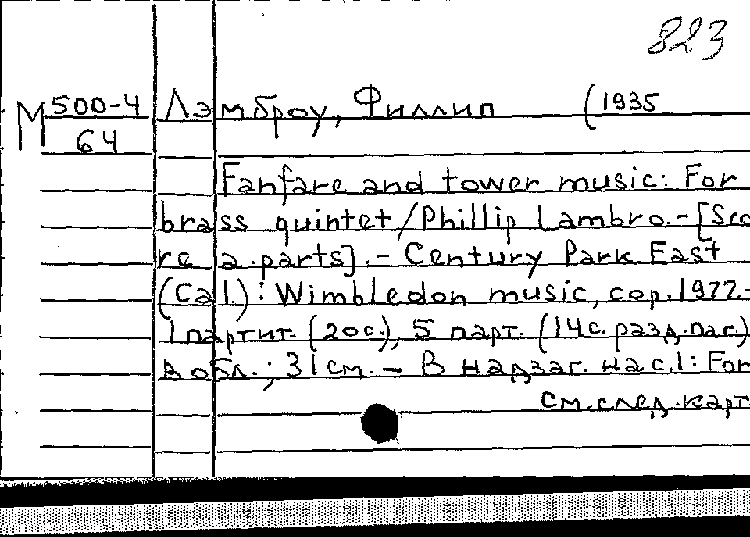 823
М 500-4
64
Лэмброу, Филлип (1935
Fanfare and tower music: For
brass quintet/Phillip Lambro.-[Sco
re a.parts].- Century Park East
(Cal.): Wimbledon music, cop.1977.-
1 партит. (20с.), 5 парт. (14с. разд.паг.)
в обл.; 31см. - В надзаг. на с.1: For
см.след.карт